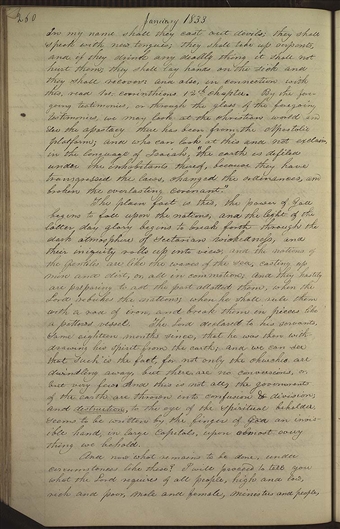 260
January 1833
In my name shall they cast out devils; they shall
speak with new tongues; they shall take up serpents,
and if they drink any deadly thing, it shall not
hurt them; they shall lay hands on the sick and
they shall recover: and also, in connection with
this, read 1st. corinthians 12th chapter. By the fore-
going testimonies, or through the glass of the foregoing
testimonies, we may look at the christian world and
see the apostacy there has been from the apostolic
platform; and who can look at this and not exclaim,
in the language of Isaiah, "the earth is defiled
under the inhabitants thereof, because they have
transgressed the laws, changed the ordinances, and
broken the everlasting covenant."
The plain fact is this, the power of God
begins to fall upon the nations, and the light of the
latter day glory begins to break forth through the
dark atmosphere of sectarian wickedness, and
their iniquity rolls up into view, and the nations of
the Gentiles are like the waves of the sea, casting up
mire and dirt, or all in commotion, and they hastily
are preparing to act the part allotted them, when the
Lord rebukes the nations; when he shall rule them
with a rod of iron, and break them in pieces like
a potters vessel. The Lord declared to his servants,
some eighteen months since, that he was then with-
drawing his spirit from the earth; and we can see
that such is the fact, for not only the churches are
dwindling away, but there are no conversions, or
but very few: And this is not all, the governments
of the earth are thrown into confusion & division;
and destruction, to the eye of the spiritual beholder
seems to be written by the finger of God an invis-
ible hand, in large capitals, upon almost every
thing we behold.
And now what remains to be done, under
circumstances like these? I will proceed to tell you
what the Lord requires of all people, high and low,
rich and poor, male and female, ministers and people,